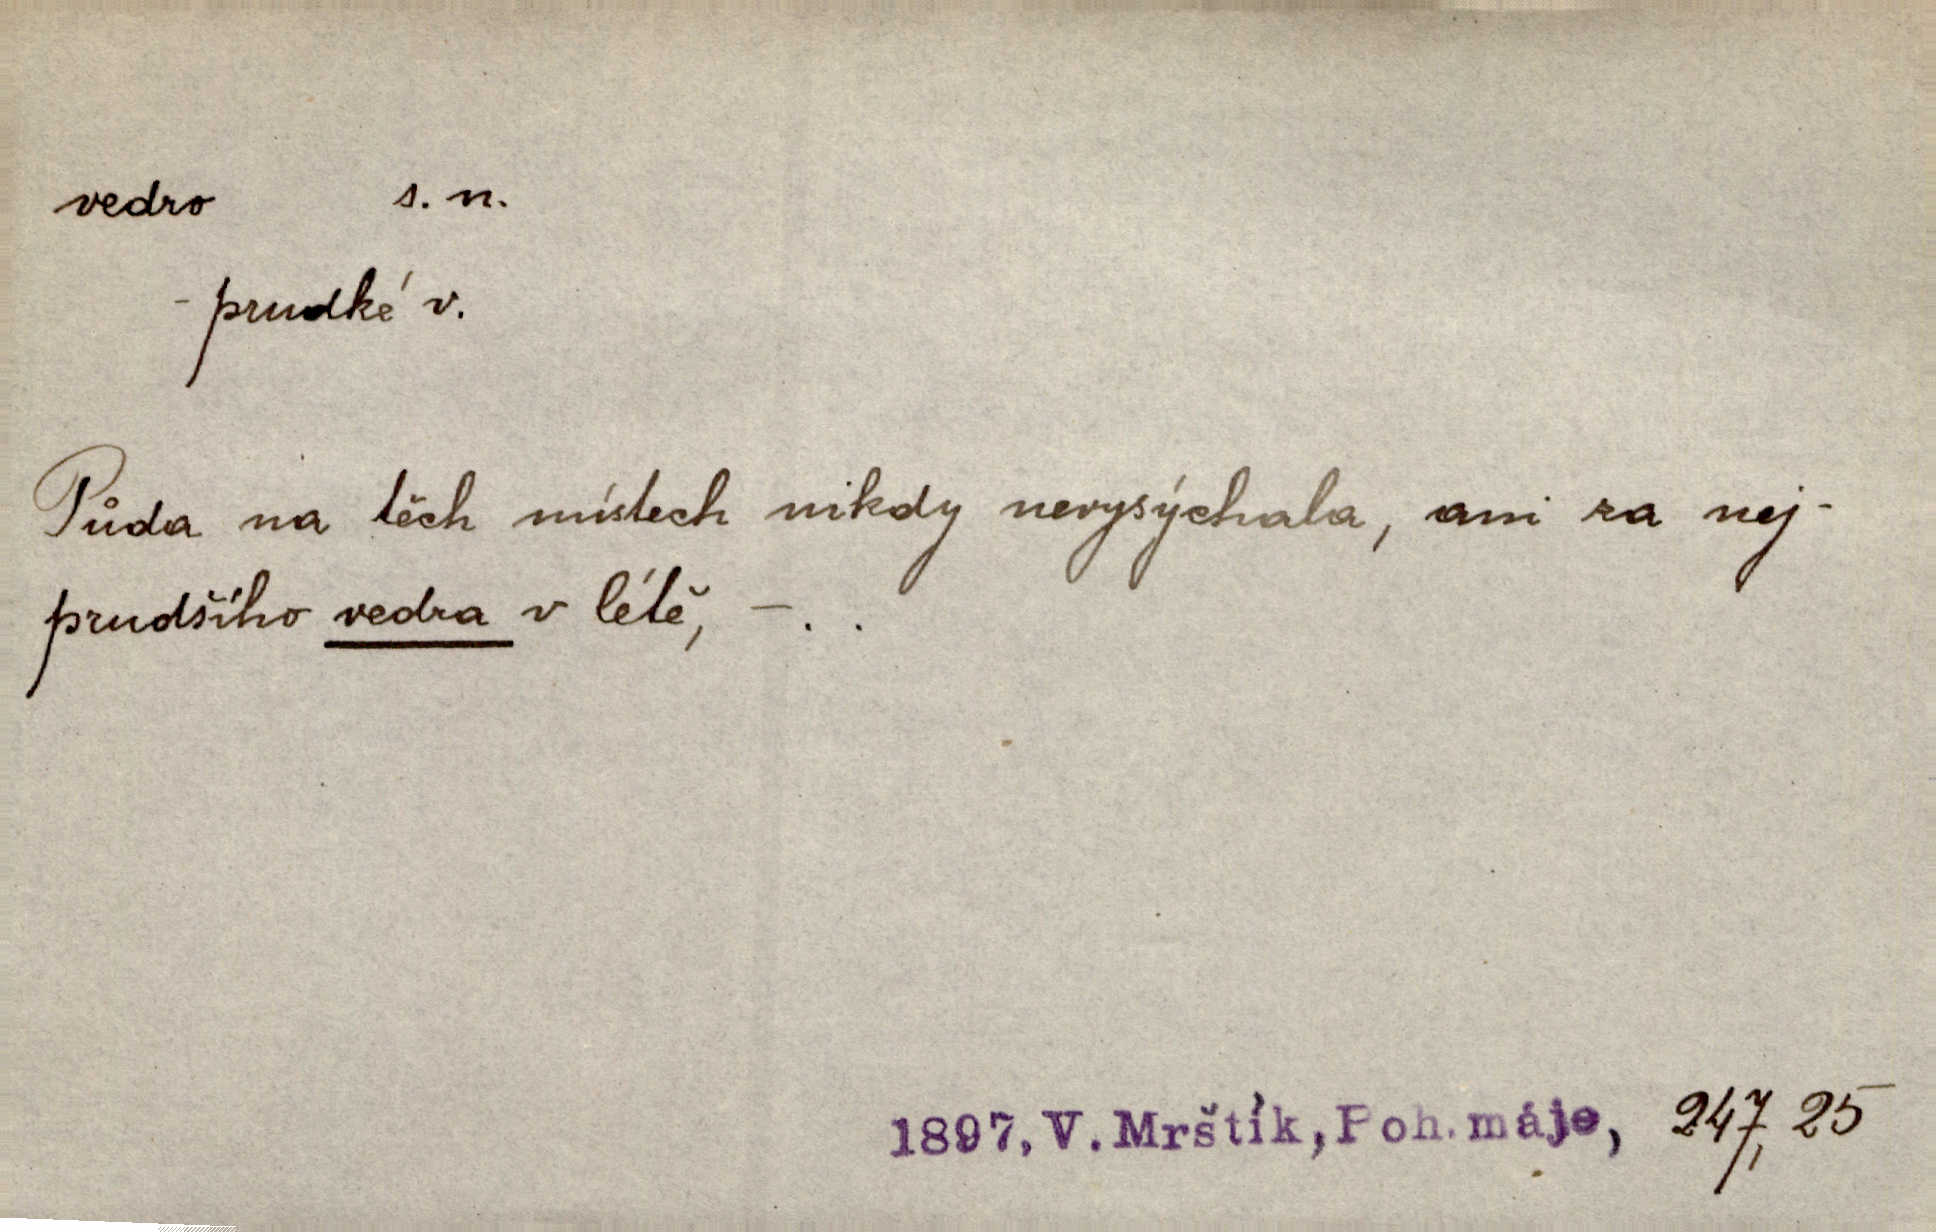 vedro s. n.
- prudké v.
Půda na těch místech nikdy nevysýchala, ani za nej-
prudšího vedra v létě, - . .
1897, V. Mrštík, Poh. máje, 247, 25